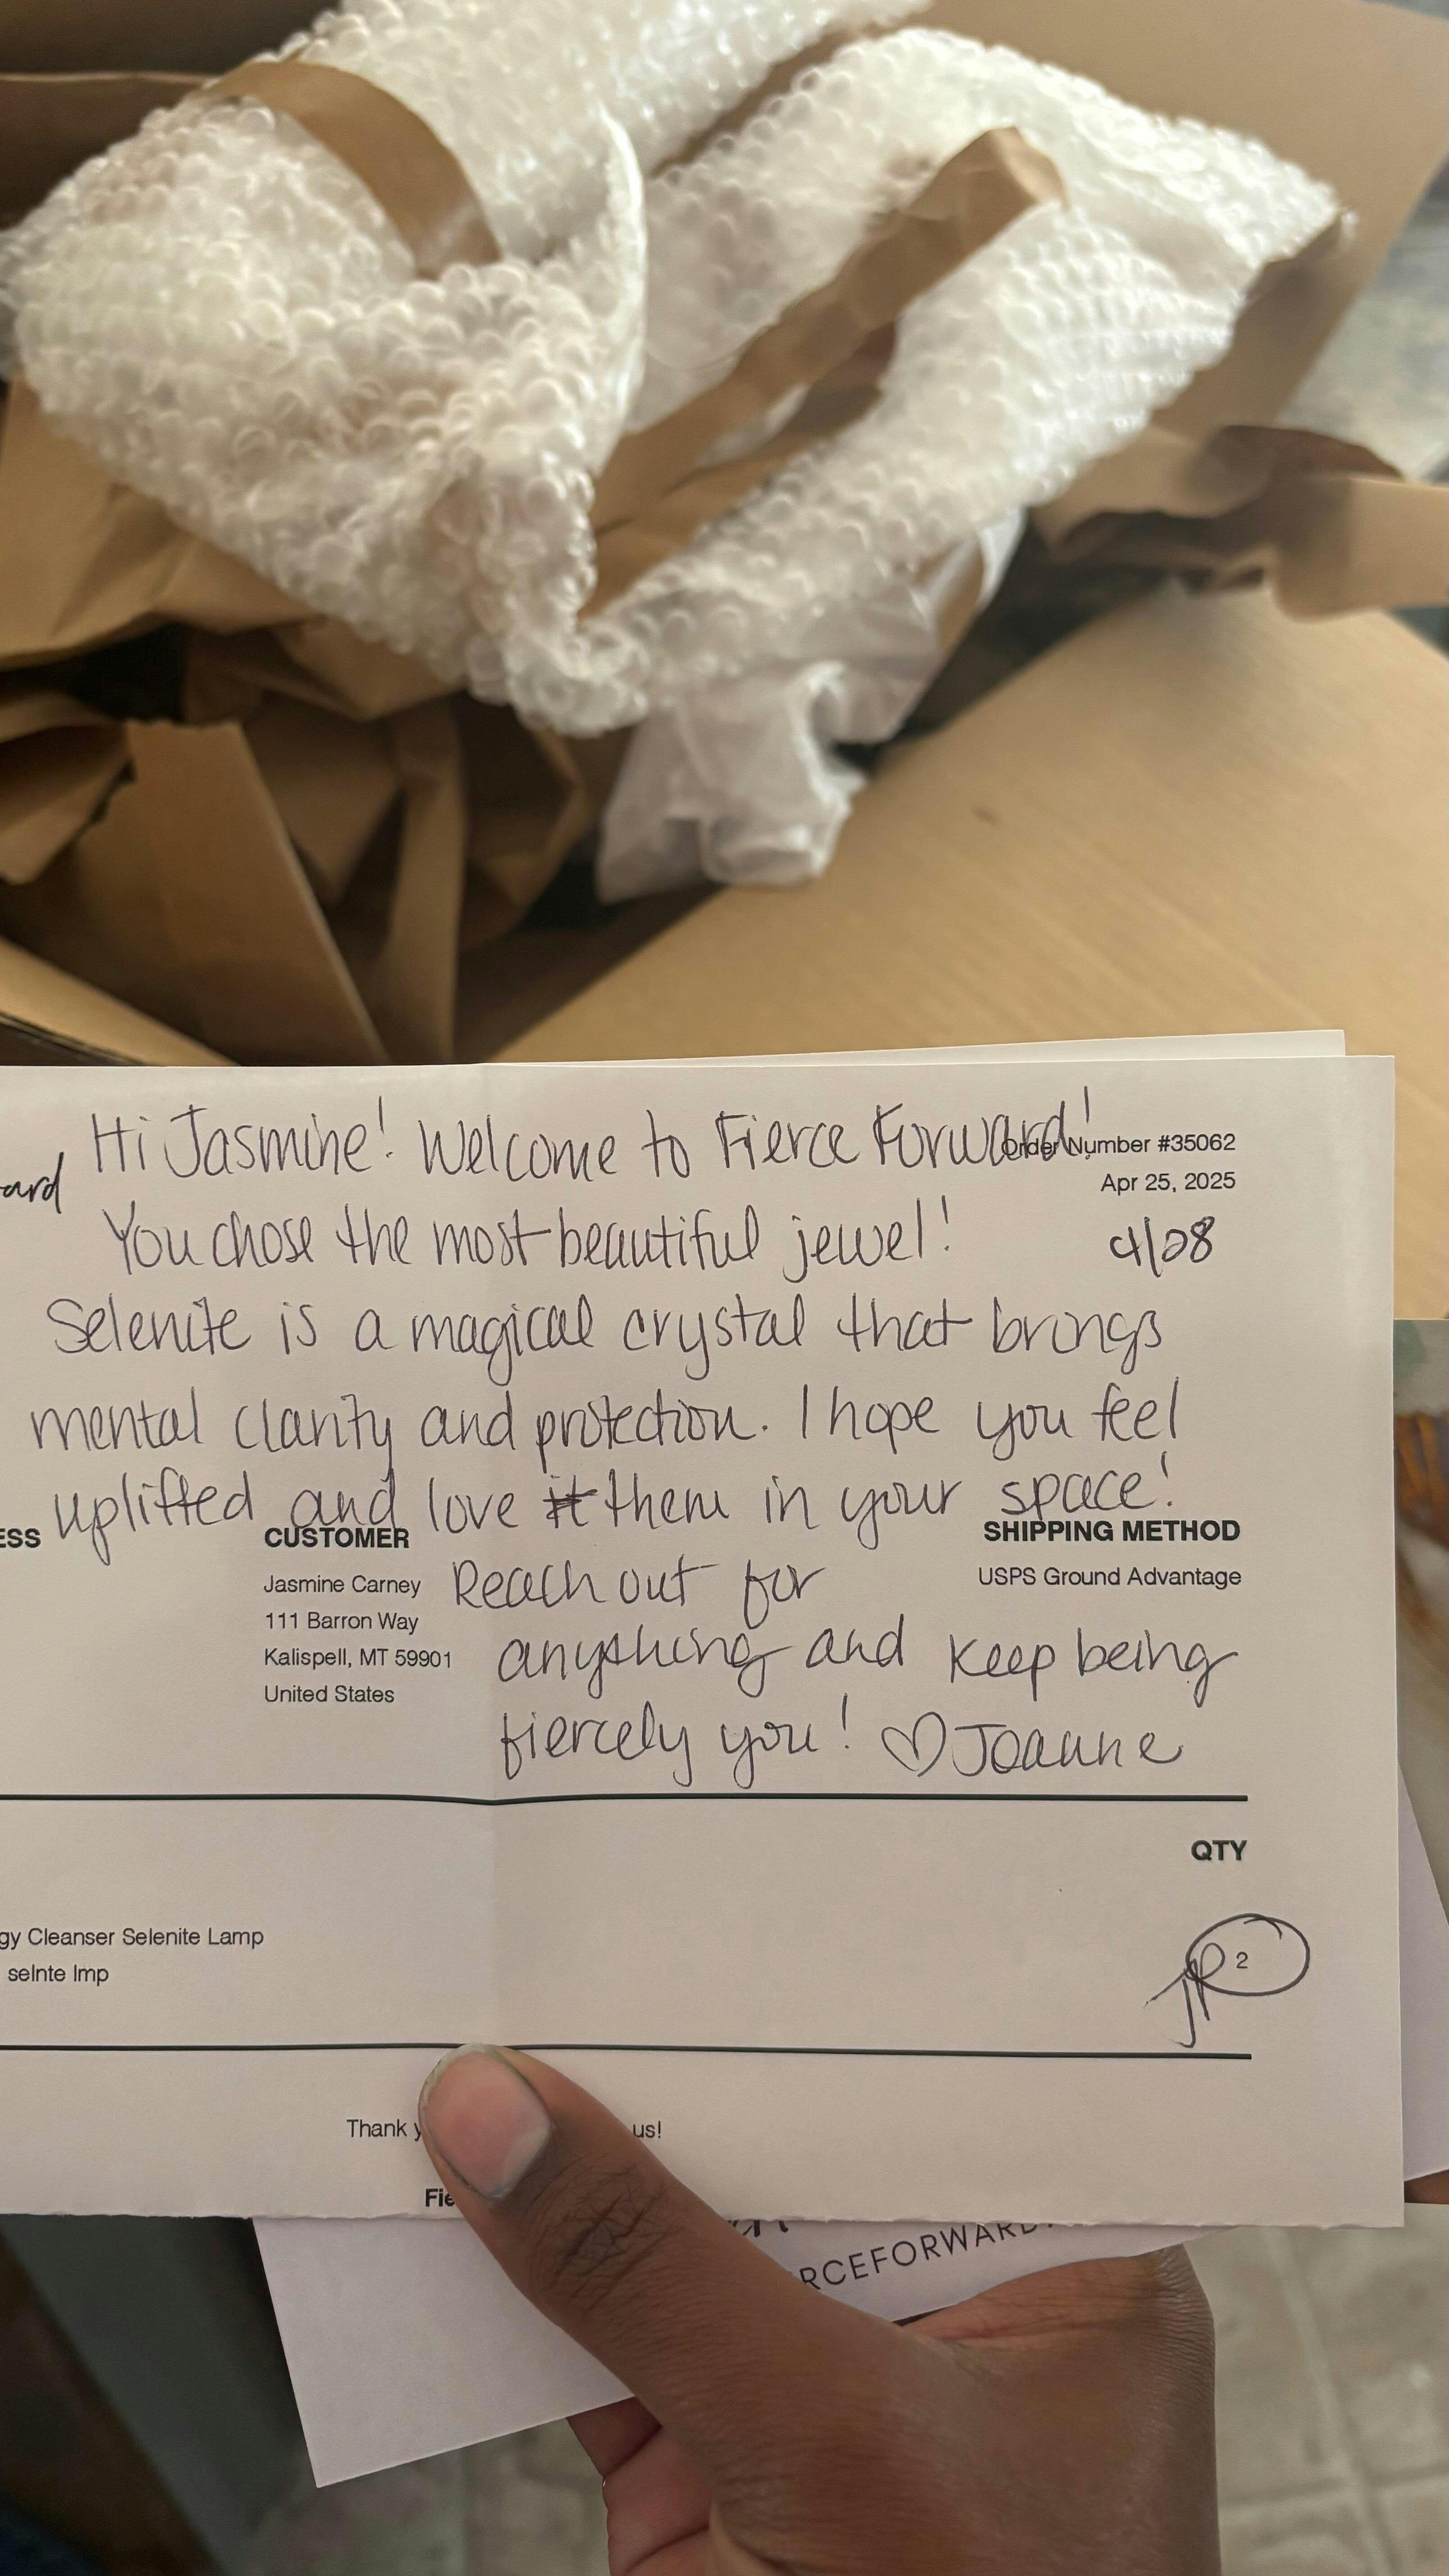 Hi Jasmine! Welcome to Fierce Forward!
Order Number #35062
Apr 25, 2025
ard
You chose the most beautiful jewel!
Selenite is a magical crystal that brings
mental clarity and protection. I hope you feel
uplifted and love it them in your space!
ESS
CUSTOMER
SHIPPING METHOD
Jasmine Carney
111 Barron Way
Kalispell, MT 59901
United States
USPS Ground Advantage
Reach out for
anything and keep being
fiercely you! ♡ Joanne
QTY
gy Cleanser Selenite Lamp
selnte lmp
2
JP
Thank y
us!
Fie
RCEFORWARD